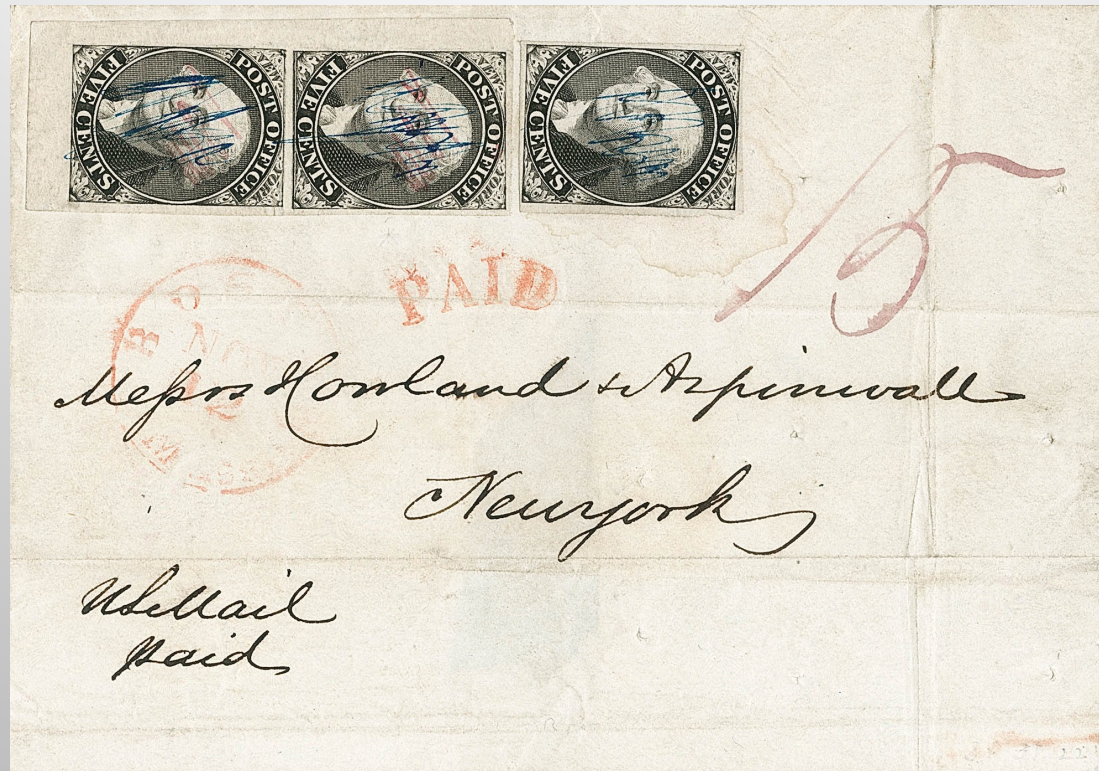 POST OFFICE FIVE CENTS
POST OFFICE FIVE CENTS
POST OFFICE FIVE CENTS
15
PAID
NOV
12
Messrs Howland & Aspinwall
New york
U S Mail
paid